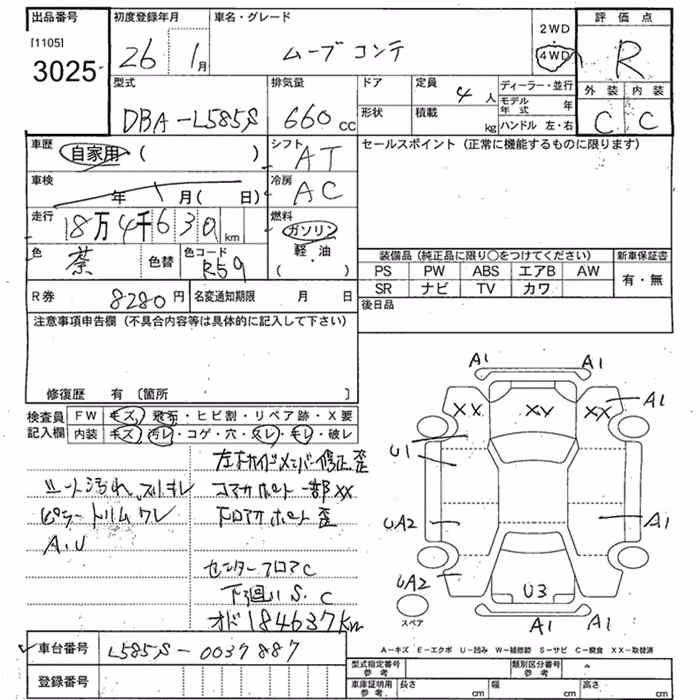 出品番号 初度登録年月 車名・グレード 2WD 評価点
[1105] 3025 26 1月 ムーブコンテ 4WD R
型式 排気量 ドア 定員 ディーラー・並行 外装 内装
DBA-L585S 660cc 4人 モデル年式 年
形状 積載 kg ハンドル 左・右 C C
車歴 自家用 ( ) シフト AT セールスポイント (正常に機能するものに限ります)
車検 年 月( 日) 冷房 AC
走行 18万4千630km 燃料 ガソリン
軽・油
( )
色 茶 色替 色コード R59
装備品 (純正品に限り○をつけてください) 新車保証書
PS PW ABS エアB AW 有・無
SR ナビ TV カワ
R券 8280円 名変通知期限 月 日 後日品
注意事項申告欄 (不具合内容等は具体的に記入して下さい)
修復歴 有 [箇所 ]
検査員 FW キズ・飛石・ヒビ割・リペア跡・X要
記入欄 内装 キズ・汚レ・コゲ・穴・スレ・モレ・破レ
シート汚れ
ピラートリムワレ
A.U
コアサポート一部XX
フロアサポート歪
センターフロアC
下廻りS.C
オド184637km
A1 A1
XX XX XX A1
U1
UA2 A1
UA2 U3
スペア A1 A1
A-キズ E-エクボ U-凹み W-補修跡 S-サビ C-腐食 XX-取替済
車台番号 L585S-0037887
登録番号
型式指定番号 参考 類別区分番号 参考
車庫証明用 参考 長さ cm 幅 cm 高さ cm